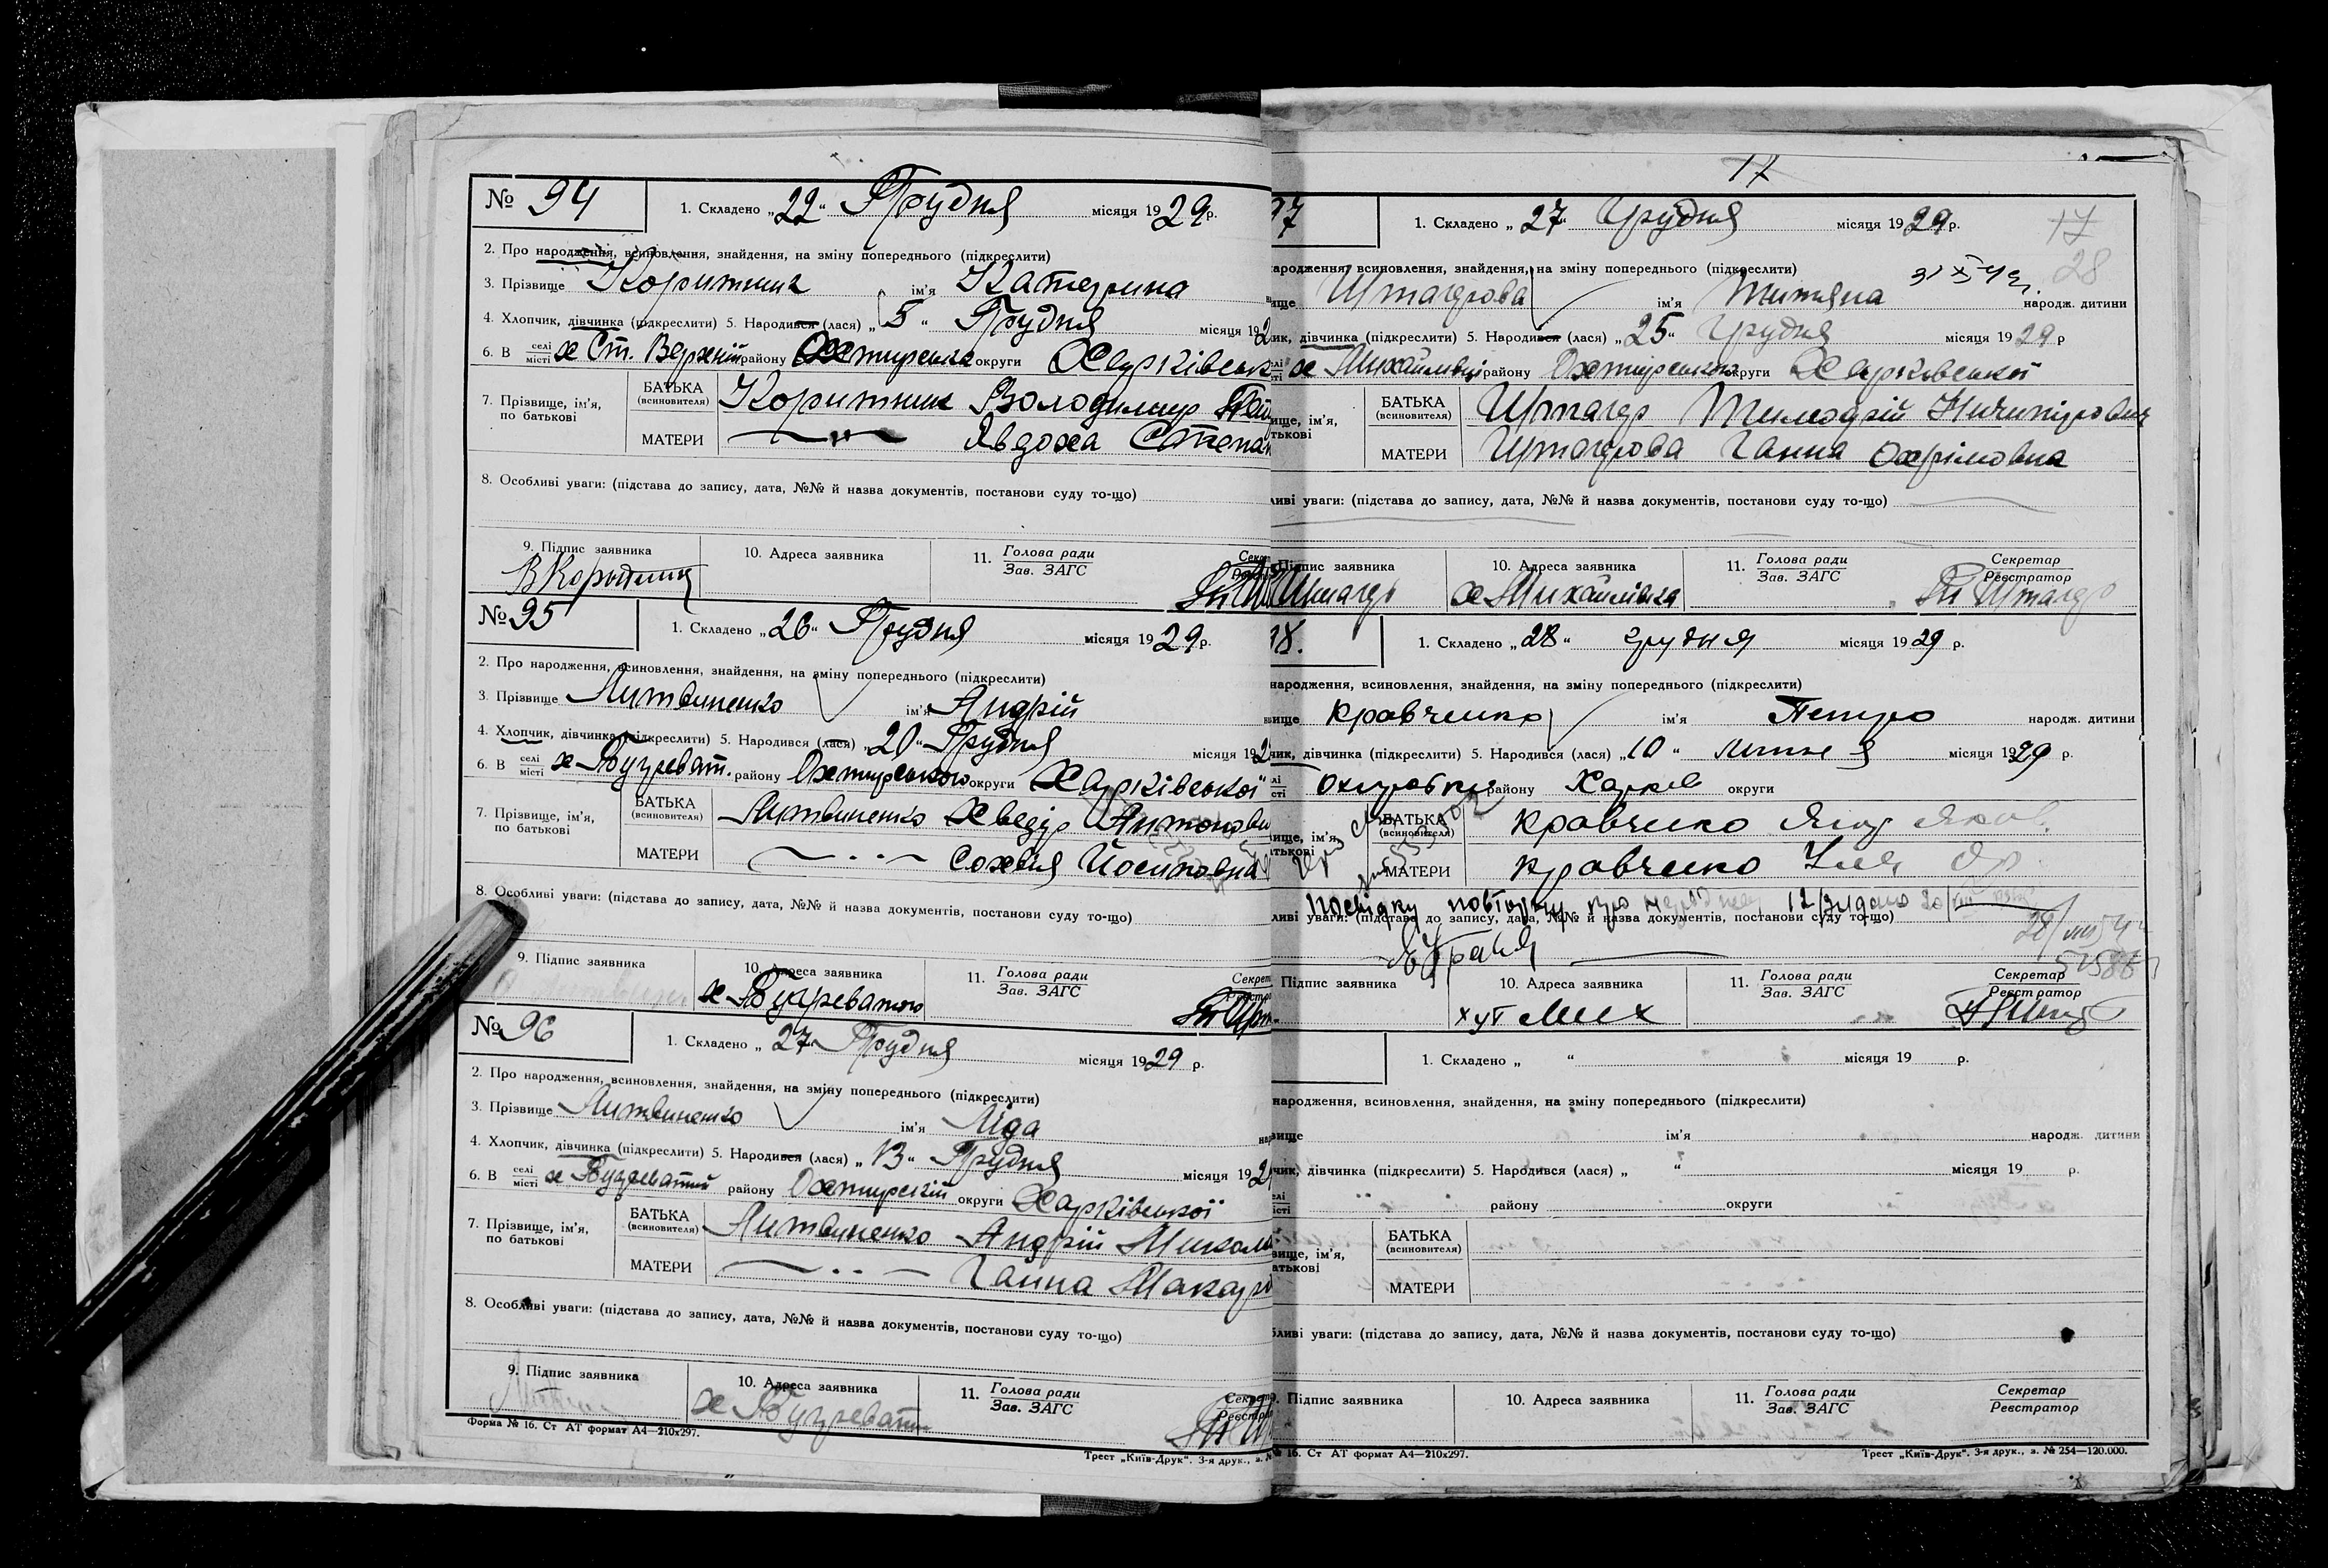 № 94
1. Складено „22“ Грудня місяця 1929 р.
2. Про народження, всиновлення, знайдення, на зміну попереднього (підкреслити)
3. Прізвище Коритник ім'я Катерина
4. Хлопчик, дівчинка (підкреслити) 5. Народився (лася) „5“ Грудня місяця 192
6. В селі місті х Ст. району округи Харківськ
7. Прізвище, ім'я, по батькові
БАТЬКА (всиновителя) Коритник Володимир
МАТЕРИ —〃— Явдоха Степан
8. Особливі уваги: (підстава до запису, дата, №№ й назва документів, постанови суду то-що)
9. Підпис заявника 10. Адреса заявника 11. Голова ради Зав. ЗАГС
№ 95
1. Складено „26“ Грудня місяця 1929 р.
2. Про народження, всиновлення, знайдення, на зміну попереднього (підкреслити)
3. Прізвище Литвиненко ім'я Андрій
4. Хлопчик, дівчинка (підкреслити) 5. Народився (лася) „20“ Грудня місяця 192
6. В селі місті х Бугреват. району Охтирського округи Харківської
7. Прізвище, ім'я, по батькові
БАТЬКА (всиновителя) Литвиненко Хведір Антонови
МАТЕРИ —〃— Йосиповна
8. Особливі уваги: (підстава до запису, дата, №№ й назва документів, постанови суду то-що)
9. Підпис заявника 10. Адреса заявника 11. Голова ради Зав. ЗАГС
х Бугреватого
№ 96
1. Складено „27“ Грудня місяця 1929 р.
2. Про народження, всиновлення, знайдення, на зміну попереднього (підкреслити)
3. Прізвище Литвиненко ім'я Ліда
4. Хлопчик, дівчинка (підкреслити) 5. Народився (лася) „13“ Грудня місяця 192
6. В селі місті х Бугреватий району Охтирській округи Харківської
7. Прізвище, ім'я, по батькові
БАТЬКА (всиновителя) Литвиненко Андрій Микола
МАТЕРИ —〃— Ганна Макаро
8. Особливі уваги: (підстава до запису, дата, №№ й назва документів, постанови суду то-що)
9. Підпис заявника 10. Адреса заявника 11. Голова ради Зав. ЗАГС
х Бугреват
Форма № 16. Ст АТ формат А4—210х297.
Трест „Київ-Друк“. 3-я друк., з. №
17
97
1. Складено „27“ Грудня місяця 1929 р.
17
28
народження, всиновлення, знайдення, на зміну попереднього (підкреслити)
Штагрова ім'я Титяна народж. дитини
дівчинка (підкреслити) 5. Народився (лася) „25“ Грудня місяця 1929 р
х Михайлівці району Охтирського округи Харківської
БАТЬКА (всиновителя) Штагр Тимофій Ничипірович
МАТЕРИ Штагрова Ганна Охрімовна
уваги: (підстава до запису, дата, №№ й назва документів, постанови суду то-що)
Підпис заявника 10. Адреса заявника 11. Голова ради Зав. ЗАГС Секретар Реєстратор
Штагр х Михайлівка Штагр
98.
1. Складено „28“ грудня місяця 1929 р.
народження, всиновлення, знайдення, на зміну попереднього (підкреслити)
Кравченко ім'я Петро народж. дитини
дівчинка (підкреслити) 5. Народився (лася) „10“ липня місяця 1929 р.
району Харків округи
БАТЬКА (всиновителя) Кравченко
МАТЕРИ Кравченко
посвідку повторну про
уваги: (підстава до запису, дата, №№ й назва документів, постанови суду то-що)
Підпис заявника 10. Адреса заявника 11. Голова ради Зав. ЗАГС Секретар Реєстратор
хут Мих
1. Складено „ “ місяця 19 р.
народження, всиновлення, знайдення, на зміну попереднього (підкреслити)
ім'я народж. дитини
дівчинка (підкреслити) 5. Народився (лася) „ “ місяця 19 р.
району округи
БАТЬКА (всиновителя)
МАТЕРИ
уваги: (підстава до запису, дата, №№ й назва документів, постанови суду то-що)
Підпис заявника 10. Адреса заявника 11. Голова ради Зав. ЗАГС Секретар Реєстратор
№ 16. Ст АТ формат А4—210х297.
Трест „Київ-Друк“. 3-я друк., з. № 254—120.000.